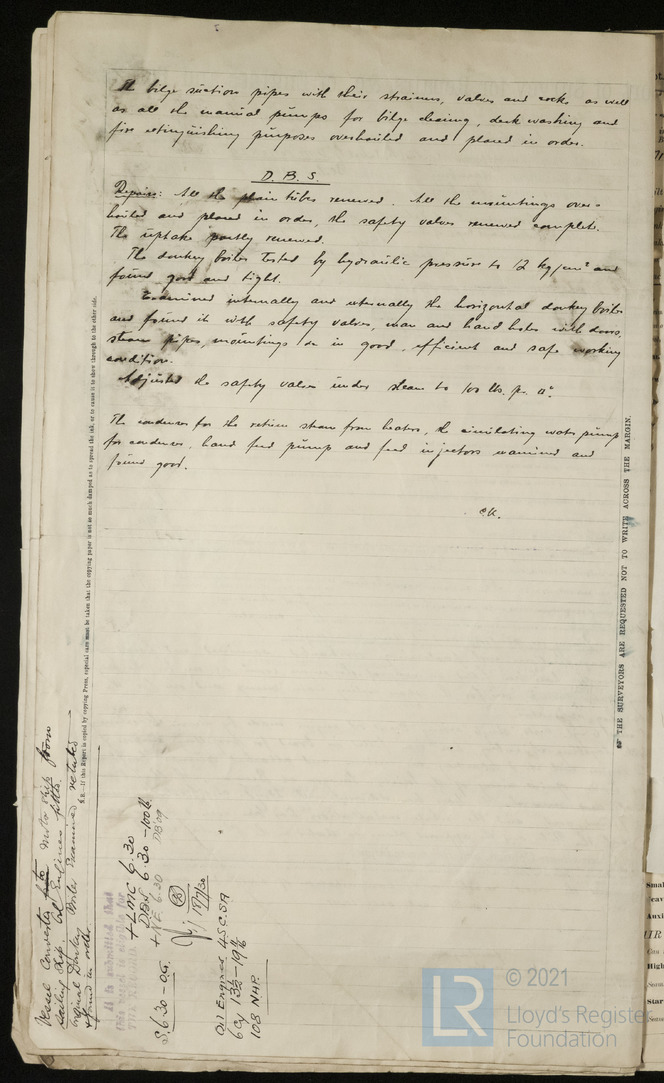 bilge suction pipes with their strainers, valves and cocks as well
as all the manual pumps for bilge clearing, deck washing and
fire extinguishing purposes overhauled and placed in order.
D. B. S.
Repairs: All the plain tubes renewed. All the mountings over=
hauled and placed in order, the safety valves renewed complete.
The uptake partly renewed.
The donkey boiler tested by hydraulic pressure to 12 kg/cm² and
found good and tight.
Examined internally and externally the horizontal donkey boiler
and found it with safety valves, man and hand holes with doors,
steam pipes, mountings in good, efficient and safe working
condition.
Adjusted the safety valves under steam to 100 lbs. pr. □".
The condenser for the return steam from heaters, the circulating water pump
for condenser, hand feed pump and feed injectors examined and
found good.
N.B.—If this Report is copied by copying Press, especial care must be taken that the copying paper is not so much damped as to spread the ink, or to cause it to show through to the other side.
THE SURVEYORS ARE REQUESTED NOT TO WRITE ACROSS THE MARGIN.
Vessel Converted Motor ship from
Sailing Ship. Oil Engines fitted.
original Donkey Boiler Examined
& found in order
It is submitted that
this vessel is eligible for
THE RECORD
+LMC 6.30
DBS 6.30 -100lb
+NE 6.30
S. 6.30 - O.G.
18/7/30
Oil Engines 4S.C.SA
6Cy
108 NHP.
LR © 2021
Lloyd's Register
Foundation